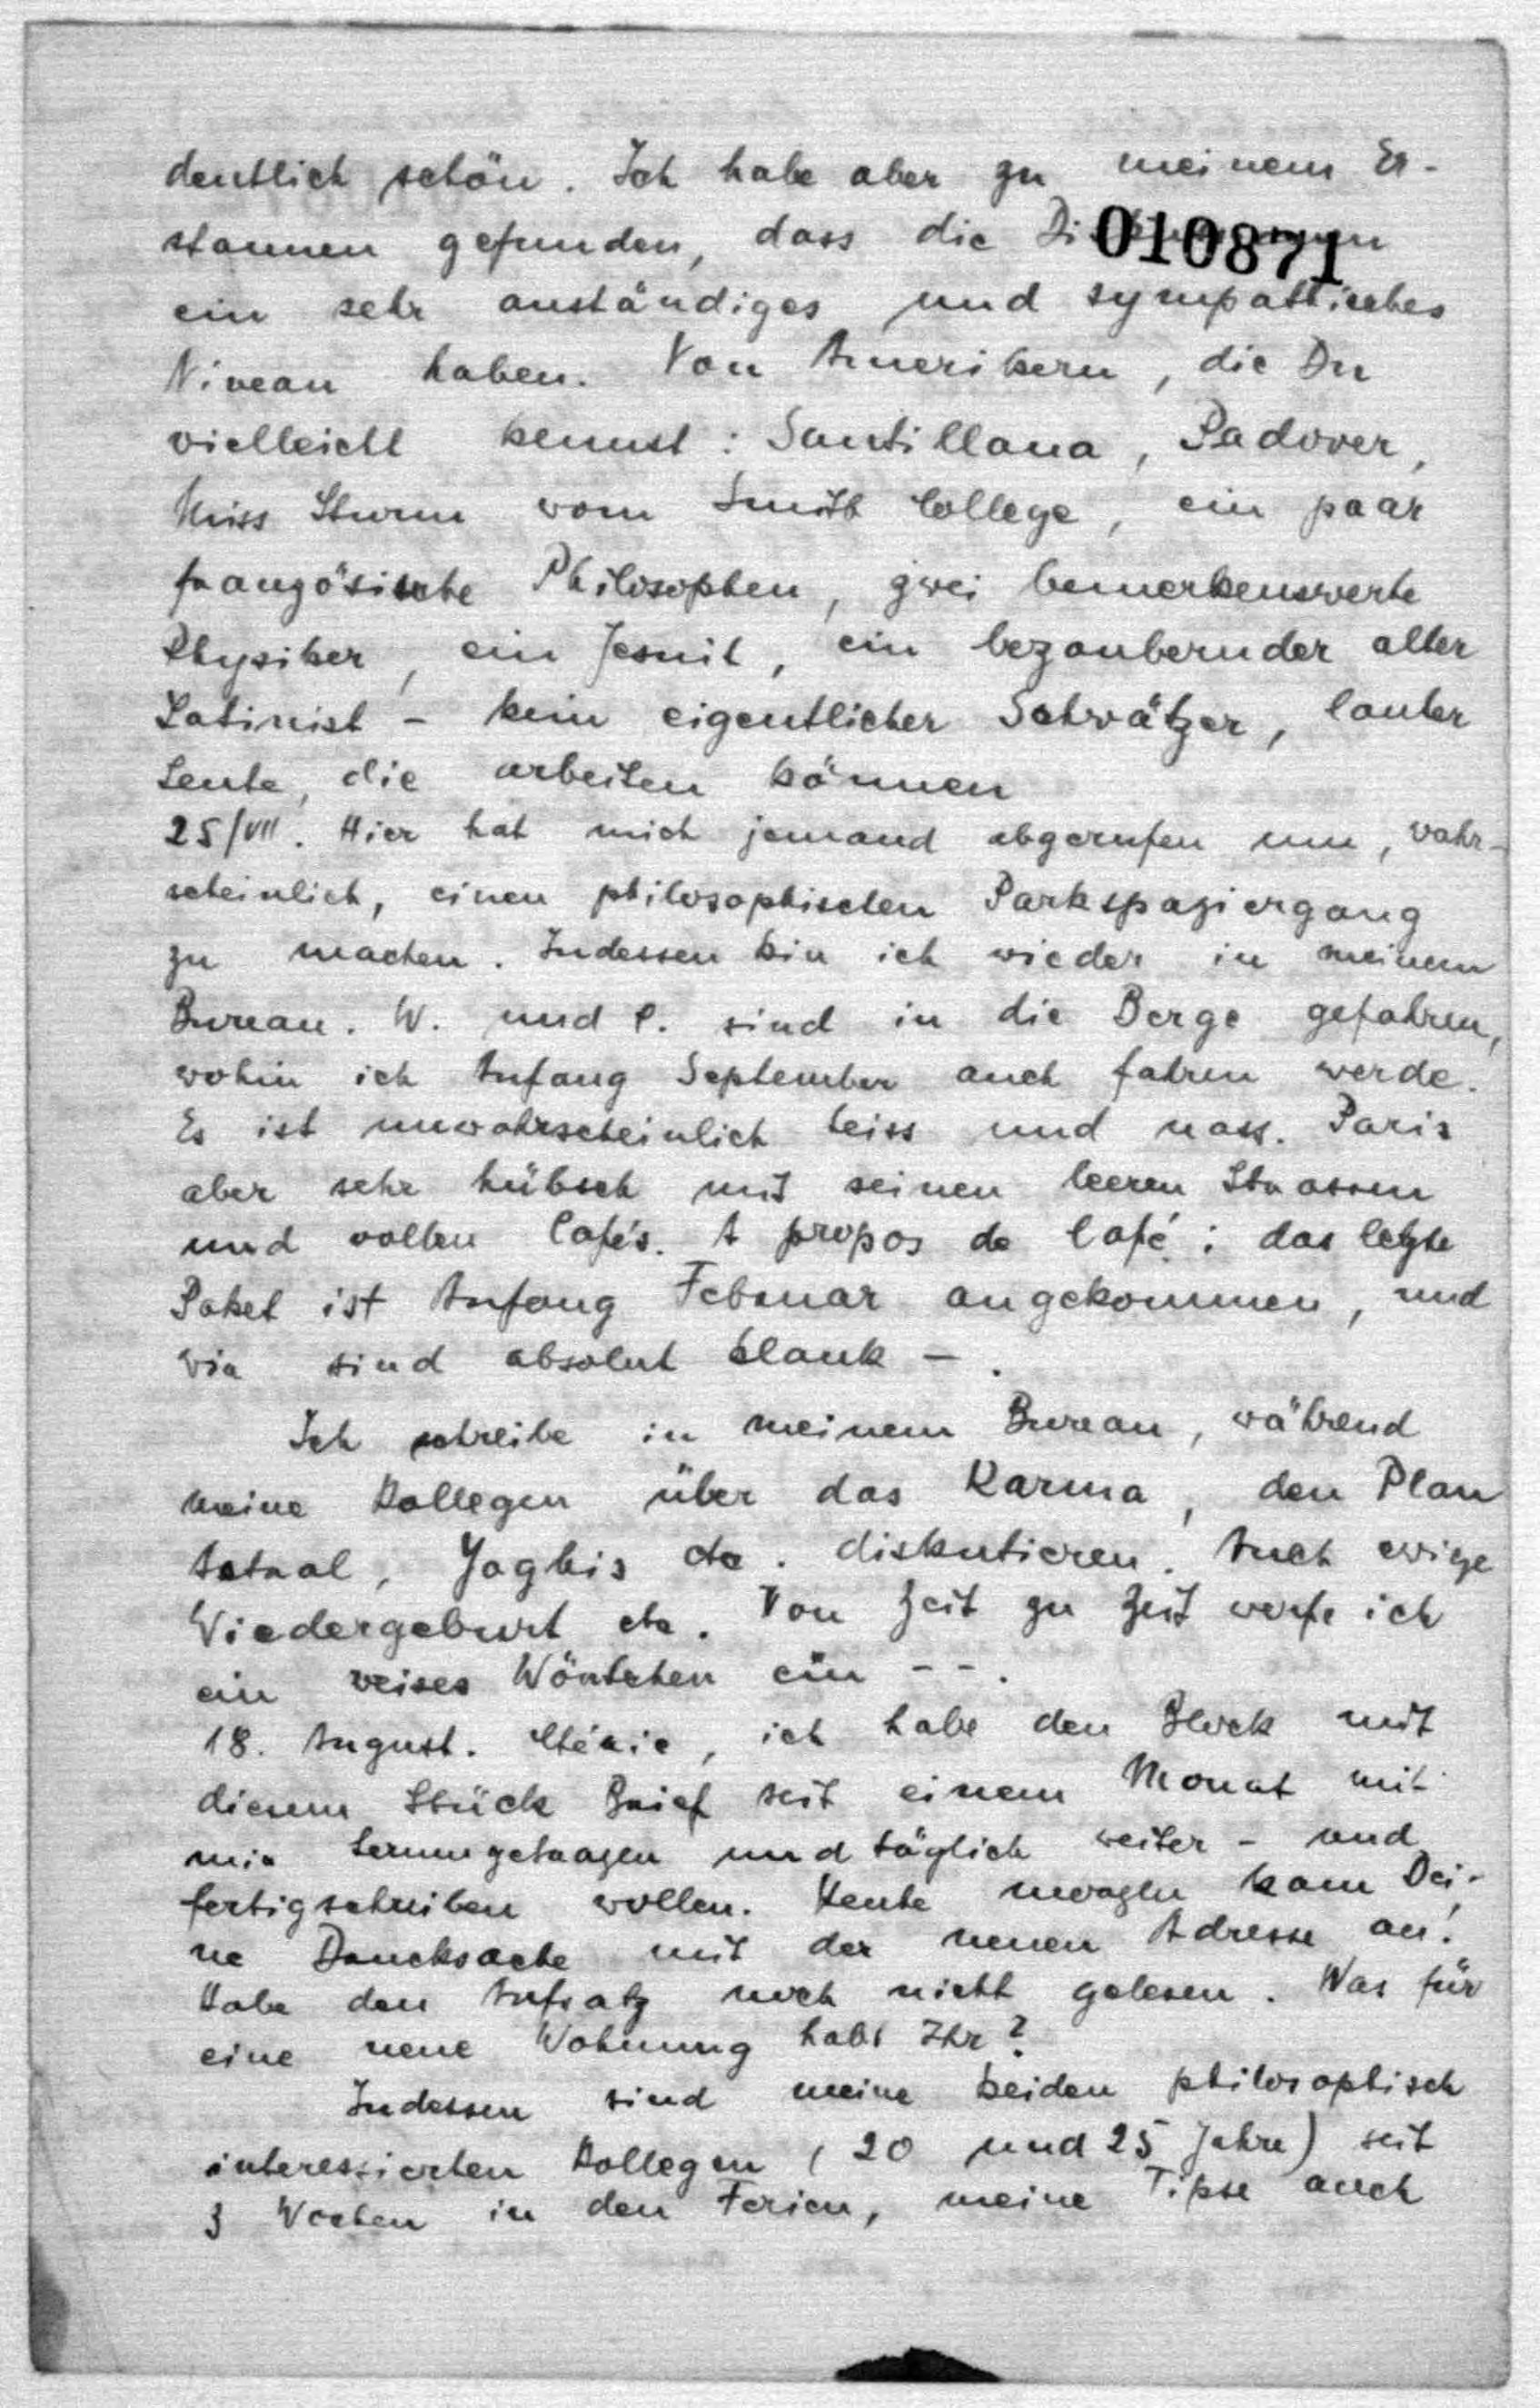 dentlich schön. Ich habe aber zu meinem Er-
staunen gefunden, dass die
010871
ein sehr anständiges und sympathisches
Niveau haben. Von Amerikern, die Du
vielleicht kennst: Santillana, Padover,
Miss Sturm vom Smith College, ein paar
französische Philosophen, zwei bemerkenswerte
Physiker, ein Jesuit, ein bezaubernder alter
Latinist - kein eigentlicher Schwätzer, lauter
Leute, die arbeiten können
25/VII. Hier hat mich jemand abgerufen um, wahr-
scheinlich, einen philosophischen Parkspaziergang
zu machen. Indessen bin ich wieder in meinem
Bureau. W. und P. sind in die Berge gefahren,
wohin ich Anfang September auch fahren werde.
Es ist unwahrscheinlich heiss und nass. Paris
aber sehr hübsch mit seinen leeren Strassen
und vollen Cafés. A propos de Café: das letzte
Paket ist Anfang Februar angekommen, und
wir sind absolut blank -.
Ich schreibe in meinem Bureau, während
meine Kollegen über das Karma, den Plan
astral, Yoghis etc. diskutieren. Auch ewige
Wiedergeburt etc. Von Zeit zu Zeit werfe ich
ein weises Wörtchen ein - - .
18. August. Chérie, ich habe den Block mit
diesem Stück Brief seit einem Monat mit
mir herumgetragen und täglich weiter - und
fertigschreiben wollen. Heute morgen kam Dei-
ne Drucksache mit der neuen Adresse an!
Habe den Aufsatz noch nicht gelesen. Was für
eine neue Wohnung habt Ihr?
Indessen sind meine beiden philosophisch
interessierten Kollegen (20 und 25 Jahre) seit
3 Wochen in den Ferien, meine Tipse auch